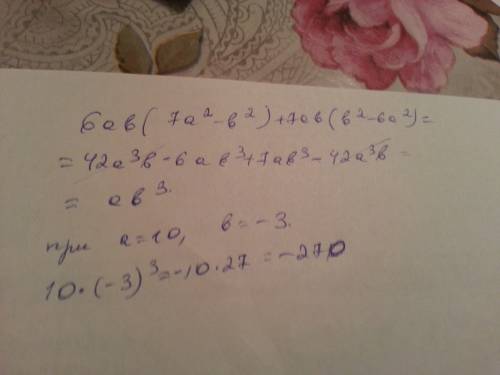 6ab( 7a²-b²)+7ab(b²-6a²)=
=42a³b-6ab³+7ab³-42a³b=
= ab³.
при a=10, b=-3.
10·(-3)³=-10·27=-270